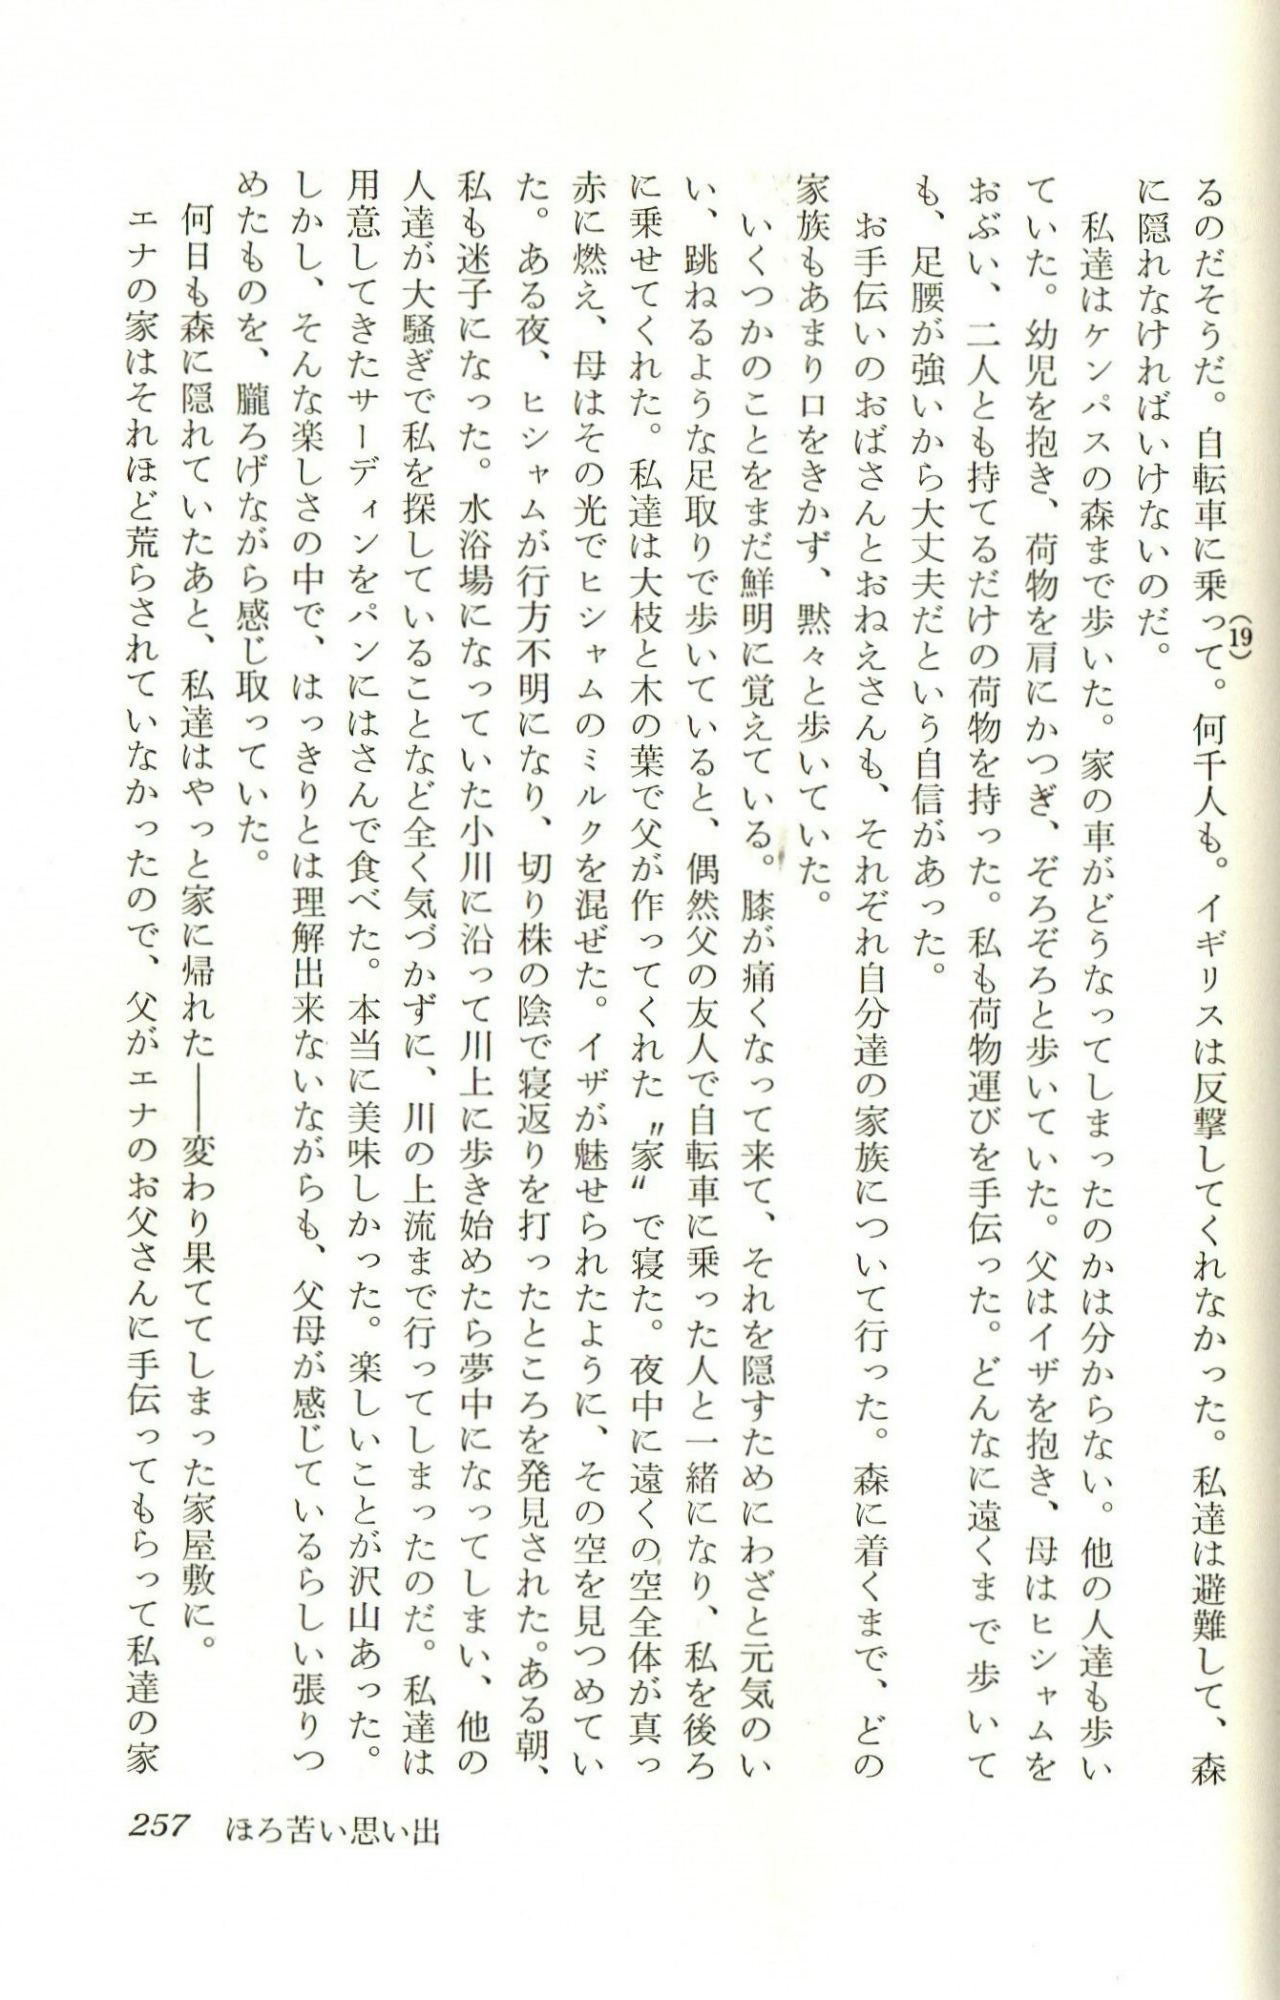 るのだそうだ。自転車に乗って。何千人も。イギリスは反撃してくれなかった。私達は避難して、森
(19)
に隠れなければいけないのだ。
私達はケンパスの森まで歩いた。家の車がどうなってしまったのかは分からない。他の人達も歩い
ていた。幼児を抱き、荷物を肩にかつぎ、ぞろぞろと歩いていた。父はイザを抱き、母はヒシャムを
おぶい、二人とも持てるだけの荷物を持った。私も荷物運びを手伝った。どんなに遠くまで歩いて
も、足腰が強いから大丈夫だという自信があった。
お手伝いのおばさんとおねえさんも、それぞれ自分達の家族について行った。森に着くまで、どの
家族もあまり口をきかず、黙々と歩いていた。
いくつかのことをまだ鮮明に覚えている。膝が痛くなって来て、それを隠すためにわざと元気のい
い、跳ねるような足取りで歩いていると、偶然父の友人で自転車に乗った人と一緒になり、私を後ろ
に乗せてくれた。私達は大枝と木の葉で父が作ってくれた〝家〟で寝た。夜中に遠くの空全体が真っ
赤に燃え、母はその光でヒシャムのミルクを混ぜた。イザが魅せられたように、その空を見つめてい
た。ある夜、ヒシャムが行方不明になり、切り株の陰で寝返りを打ったところを発見された。ある朝、
私も迷子になった。水浴場になっていた小川に沿って川上に歩き始めたら夢中になってしまい、他の
人達が大騒ぎで私を探していることなど全く気づかずに、川の上流まで行ってしまったのだ。私達は
用意してきたサーディンをパンにはさんで食べた。本当に美味しかった。楽しいことが沢山あった。
しかし、そんな楽しさの中で、はっきりとは理解出来ないながらも、父母が感じているらしい張りつ
めたものを、朧ろげながら感じ取っていた。
何日も森に隠れていたあと、私達はやっと家に帰れた――変わり果ててしまった家屋敷に。
エナの家はそれほど荒らされていなかったので、父がエナのお父さんに手伝ってもらって私達の家
257 ほろ苦い思い出